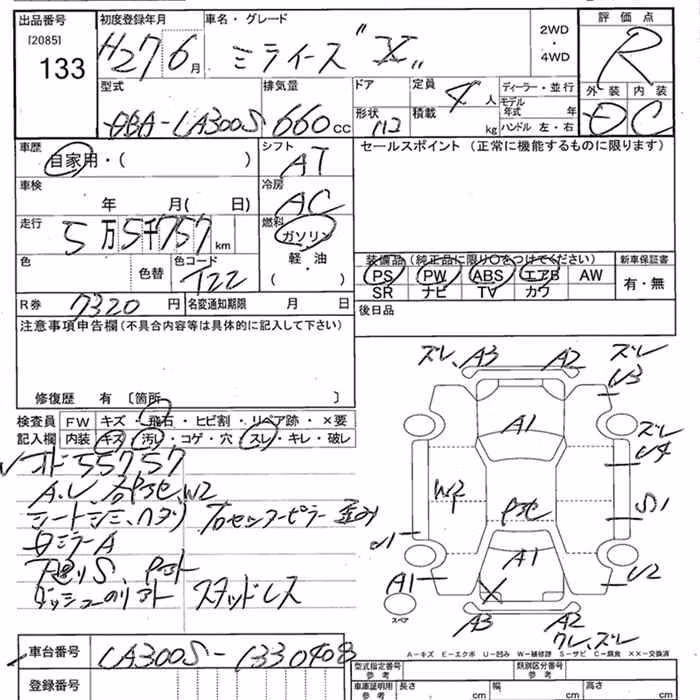 出品番号 初度登録年月 車名・グレード 2WD・4WD 評価点
[2085] 133 H27 6月 ミライース "X" R
型式 排気量 ドア 定員 4人 ディーラー・並行 外装 内装
DBA-LA300S 660cc 形状 積載 kg モデル年式 年 C
ハンドル 左・右
車歴 自家用・( ) シフト AT セールスポイント (正常に機能するものに限ります)
車検 年 月( 日) 冷房 AC
走行 5万5千757km 燃料 ガソリン 軽・油 ( )
装備品 (純正品に限り〇をつけてください) 新車保証書
PS PW ABS エアB AW 有・無
SR ナビ TV カワ
色 色替 色コード T22
R券 7320円 名変通知期限 月 日 後日品
注意事項申告欄(不具合内容等は具体的に記入して下さい)
修復歴 有 〔箇所 〕
検査員 FW キズ・飛石・ヒビ割・リペア跡・×要
記入欄 内装 キズ・汚レ・コゲ・穴・スレ・キレ・破レ
オド55757
W2
シートシミ、ヘタリ センターピラー 歪み
ミラーA
スタッドレス
ズレ、A3 A2 ズレ
U3
A1
ズレ
U4
W2 P S1
A1
A1 U2
スペア
A3 A2
ズレ
A-キズ E-エクボ U-凹み W-補修跡 S-サビ C-腐食 XX-交換済
車台番号 LA300S-1330408
登録番号
型式指定番号 参考 類別区分番号 参考
車庫証明用 参考 長さ cm 幅 cm 高さ cm